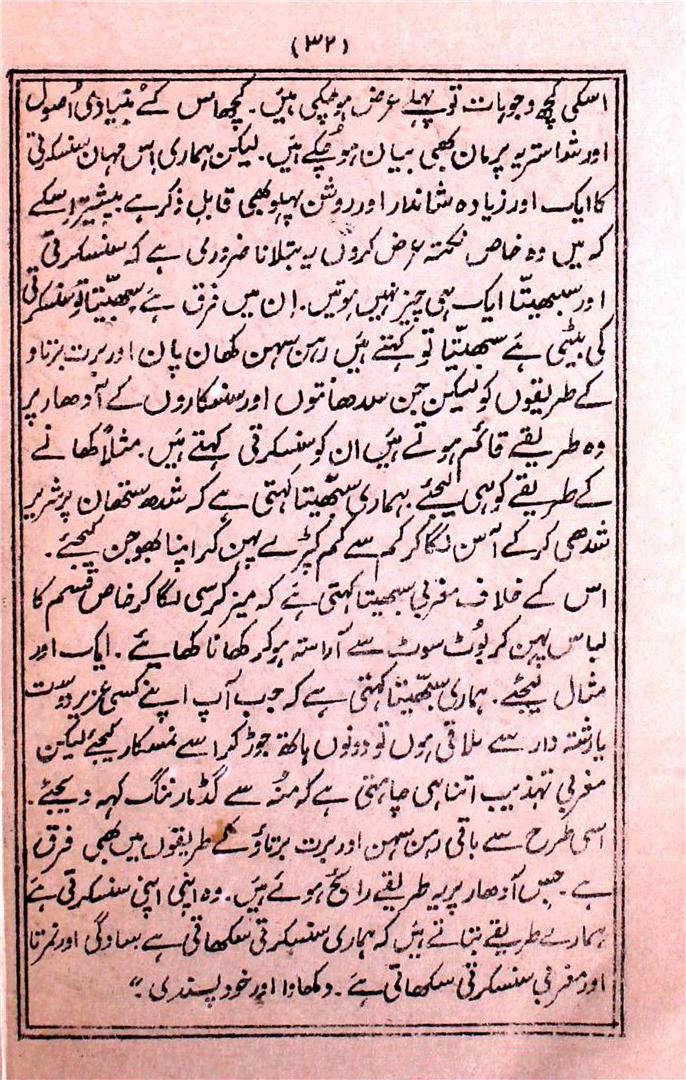 (۳۲)
اسکی کچھ وجوہات تو پہلے عرض ہو چکی ہیں۔ کچھ اس کے بنیادی اُصول
اور شداستریہ پرمان بھی بیان ہو چکے ہیں۔ لیکن ہماری اس مہان سنسکرتی
کا ایک اور زیادہ شاندار اور روشن پہلو بھی قابلِ ذکر ہے پیشتر اسکے
کہ میں وہ خاص نکتہ عرض کروں یہ بتلانا ضروری ہے کہ سنسکرتی
اور سبھیتّا ایک ہی چیز نہیں ہوتیں۔ اِن میں فرق ہے سبھیّتا تو سنسکرتی
کی بیٹی ہے سبھیتّا تو کہتے ہیں رہن سہن کھان پان اور برت برتاو
کے طریقوں کو لیکن جن سدھانتوں اور سنسکاروں کے آدھار پر
وہ طریقے قائم ہوتے ہیں ان کو سنسکرتی کہتے ہیں۔ مثلاً کھانے
کے طریقے کو ہی لیجئے۔ ہماری سبھّیتا کہتی ہے کہ شدھ ستھان پر شریر
شدھی کر کے آسن لگا کر کم سے کم کپڑے پہن کر اپنا بھوجن کیجئے۔
اس کے خلاف مغربی سبھیتا کہتی ہے کہ میز کرسی لگا کر خاص قسم کا
لباس پہن کر بُوٹ سوٹ سے آراستہ ہو کر کھانا کھائیے۔ ایک اور
مثال لیجئے۔ ہماری سبھّیتا کہتی ہے کہ جب آپ اپنے کسی عزیز دوست
یا رشتہ دار سے ملاقی ہوں تو دونوں ہاتھ جوڑ کر اسے نمسکار کیجئے لیکن
مغربی تہذیب اتنا ہی چاہتی ہے کہ منُہ سے گڈ مارننگ کہہ دیجئے۔
اسی طرح سے باقی رہن سہن اور برت برتاؤ کے طریقوں میں بھی فرق
ہے۔ جس آدھار پر یہ طریقے رائج ہوئے ہیں۔ وہ اپنی اپنی سنسکرتی ہے
ہمارے طریقے بتاتے ہیں کہ ہماری سنسکرتی سکھاتی ہے سادگی اور نمرتا
اور مغربی سنسکرتی سکھاتی ہے۔ دکھاوا اور خود پسندی۔“